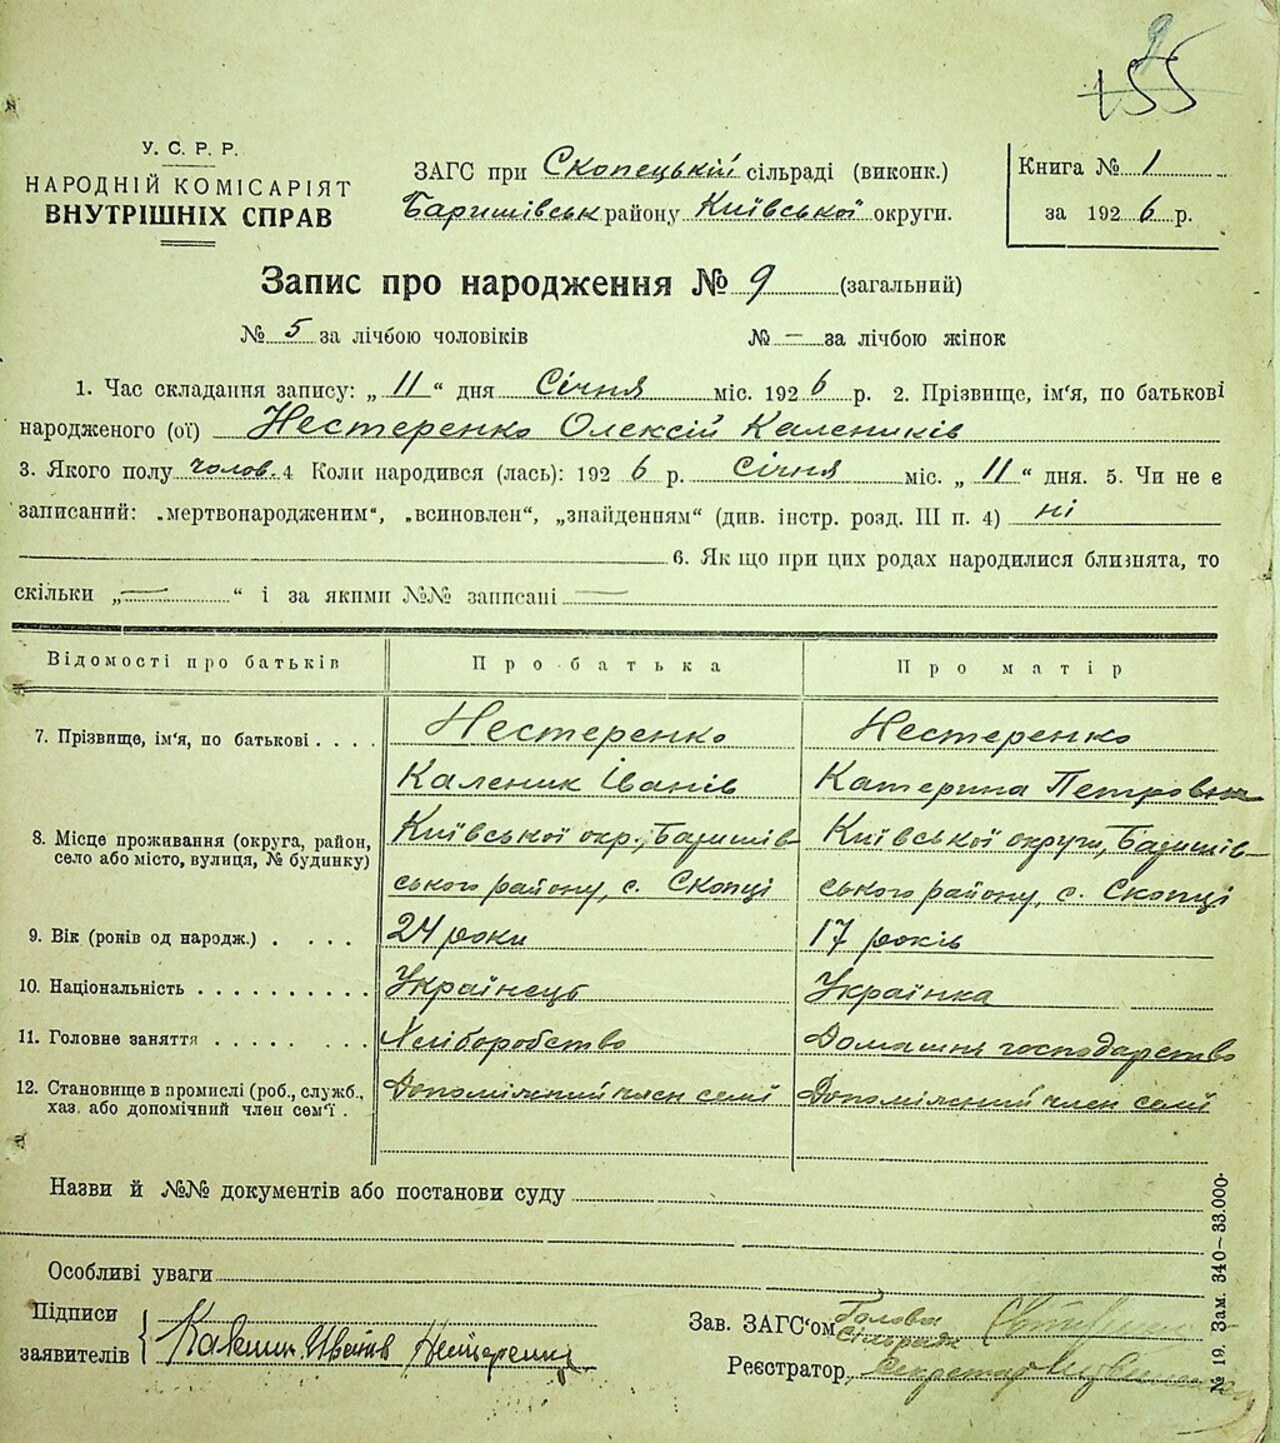 155
У. С. Р. Р.
НАРОДНІЙ КОМІСАРІЯТ
ВНУТРІШНІХ СПРАВ
ЗАГС при Скопецькій сільраді (виконк.)
Баришівськ району Київської округи.
Книга № 1
за 1926 р.
Запис про народження № 9 (загальний)
№ 5 за лічбою чоловіків № — за лічбою жінок
1. Час складання запису: „11“ дня Січня міс. 1926 р. 2. Прізвище, ім‘я, по батькові
народженого (ої) Нестеренко Олексій Калеників
3. Якого полу чолов. 4 Коли народився (лась): 1926 р. Січня міс. „11“ дня. 5. Чи не є
записаний: „мертвонародженим“, „всиновлен“, „знайденням“ (див. інстр. розд. III п. 4) ні
6. Як що при цих родах народилися близнята, то
скільки „—“ і за якими №№ записані —
Відомості про батьків Про батька Про матір
7. Прізвище, ім‘я, по батькові . . . . Нестеренко Нестеренко
Каленик Іванів Катерина Петровна
8. Місце проживання (округа, район, Київської окр., Баришів- Київської округи, Баришів-
село або місто, вулиця, № будинку) ського району, с. Скопці ського району, с. Скопці
9. Вік (років од народж.) . . . . 24 роки 17 років
10. Національність . . . . . . . . . . Українець Українка
11. Головне заняття . . . . . . . . Хліборобство Домашнє господарство
12. Становище в промислі (роб., служб., Допоміжний член семї Допоміжний член семї
хаз. або допомічний член сем‘ї .
Назви й №№ документів або постанови суду
Особливі уваги
Підписи
заявителів Каленик Иванів Нестеренко
Зав. ЗАГС‘ом Голова
Сільради
Реєстратор, Секретар
№ 19. Зам. 340—33.000.